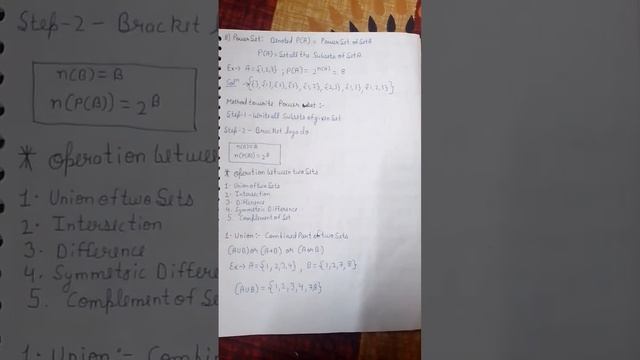 8) Power Set: Denoted P(A) = Power Set of Set A
P(A) = Set all the Subsets of Set A
Ex→ A = {1,2,3} ; P(A) = 2^n(A) = 8
Solⁿ → {{}, {1}, {2}, {3}, {1,2}, {2,3}, {1,3}, {1,2,3}}
Method to write Power set :-
Step-1 - Write all Subsets of given Set
Step-2 - Bracket laga do
n(B) = B
n(P(B)) = 2^B
* Operation between two Sets
1. Union of two Sets
2. Intersection
3. Difference
4. Symmetric Difference
5. Complement of Set
1. Union :- Combined Part of two Sets
(A∪B) or (A+B) or (A or B)
Ex→ A = {1,2,3,4} , B = {1,2,7,8}
(A∪B) = {1,2,3,4,7,8}
Step-2 - Bracket
n(B) = B
n(P(B)) = 2^B
* Operation between
1. Union of two Sets
2. Intersection
3. Difference
4. Symmetric Differe
5. Complement of Se
1. Union :- Combin